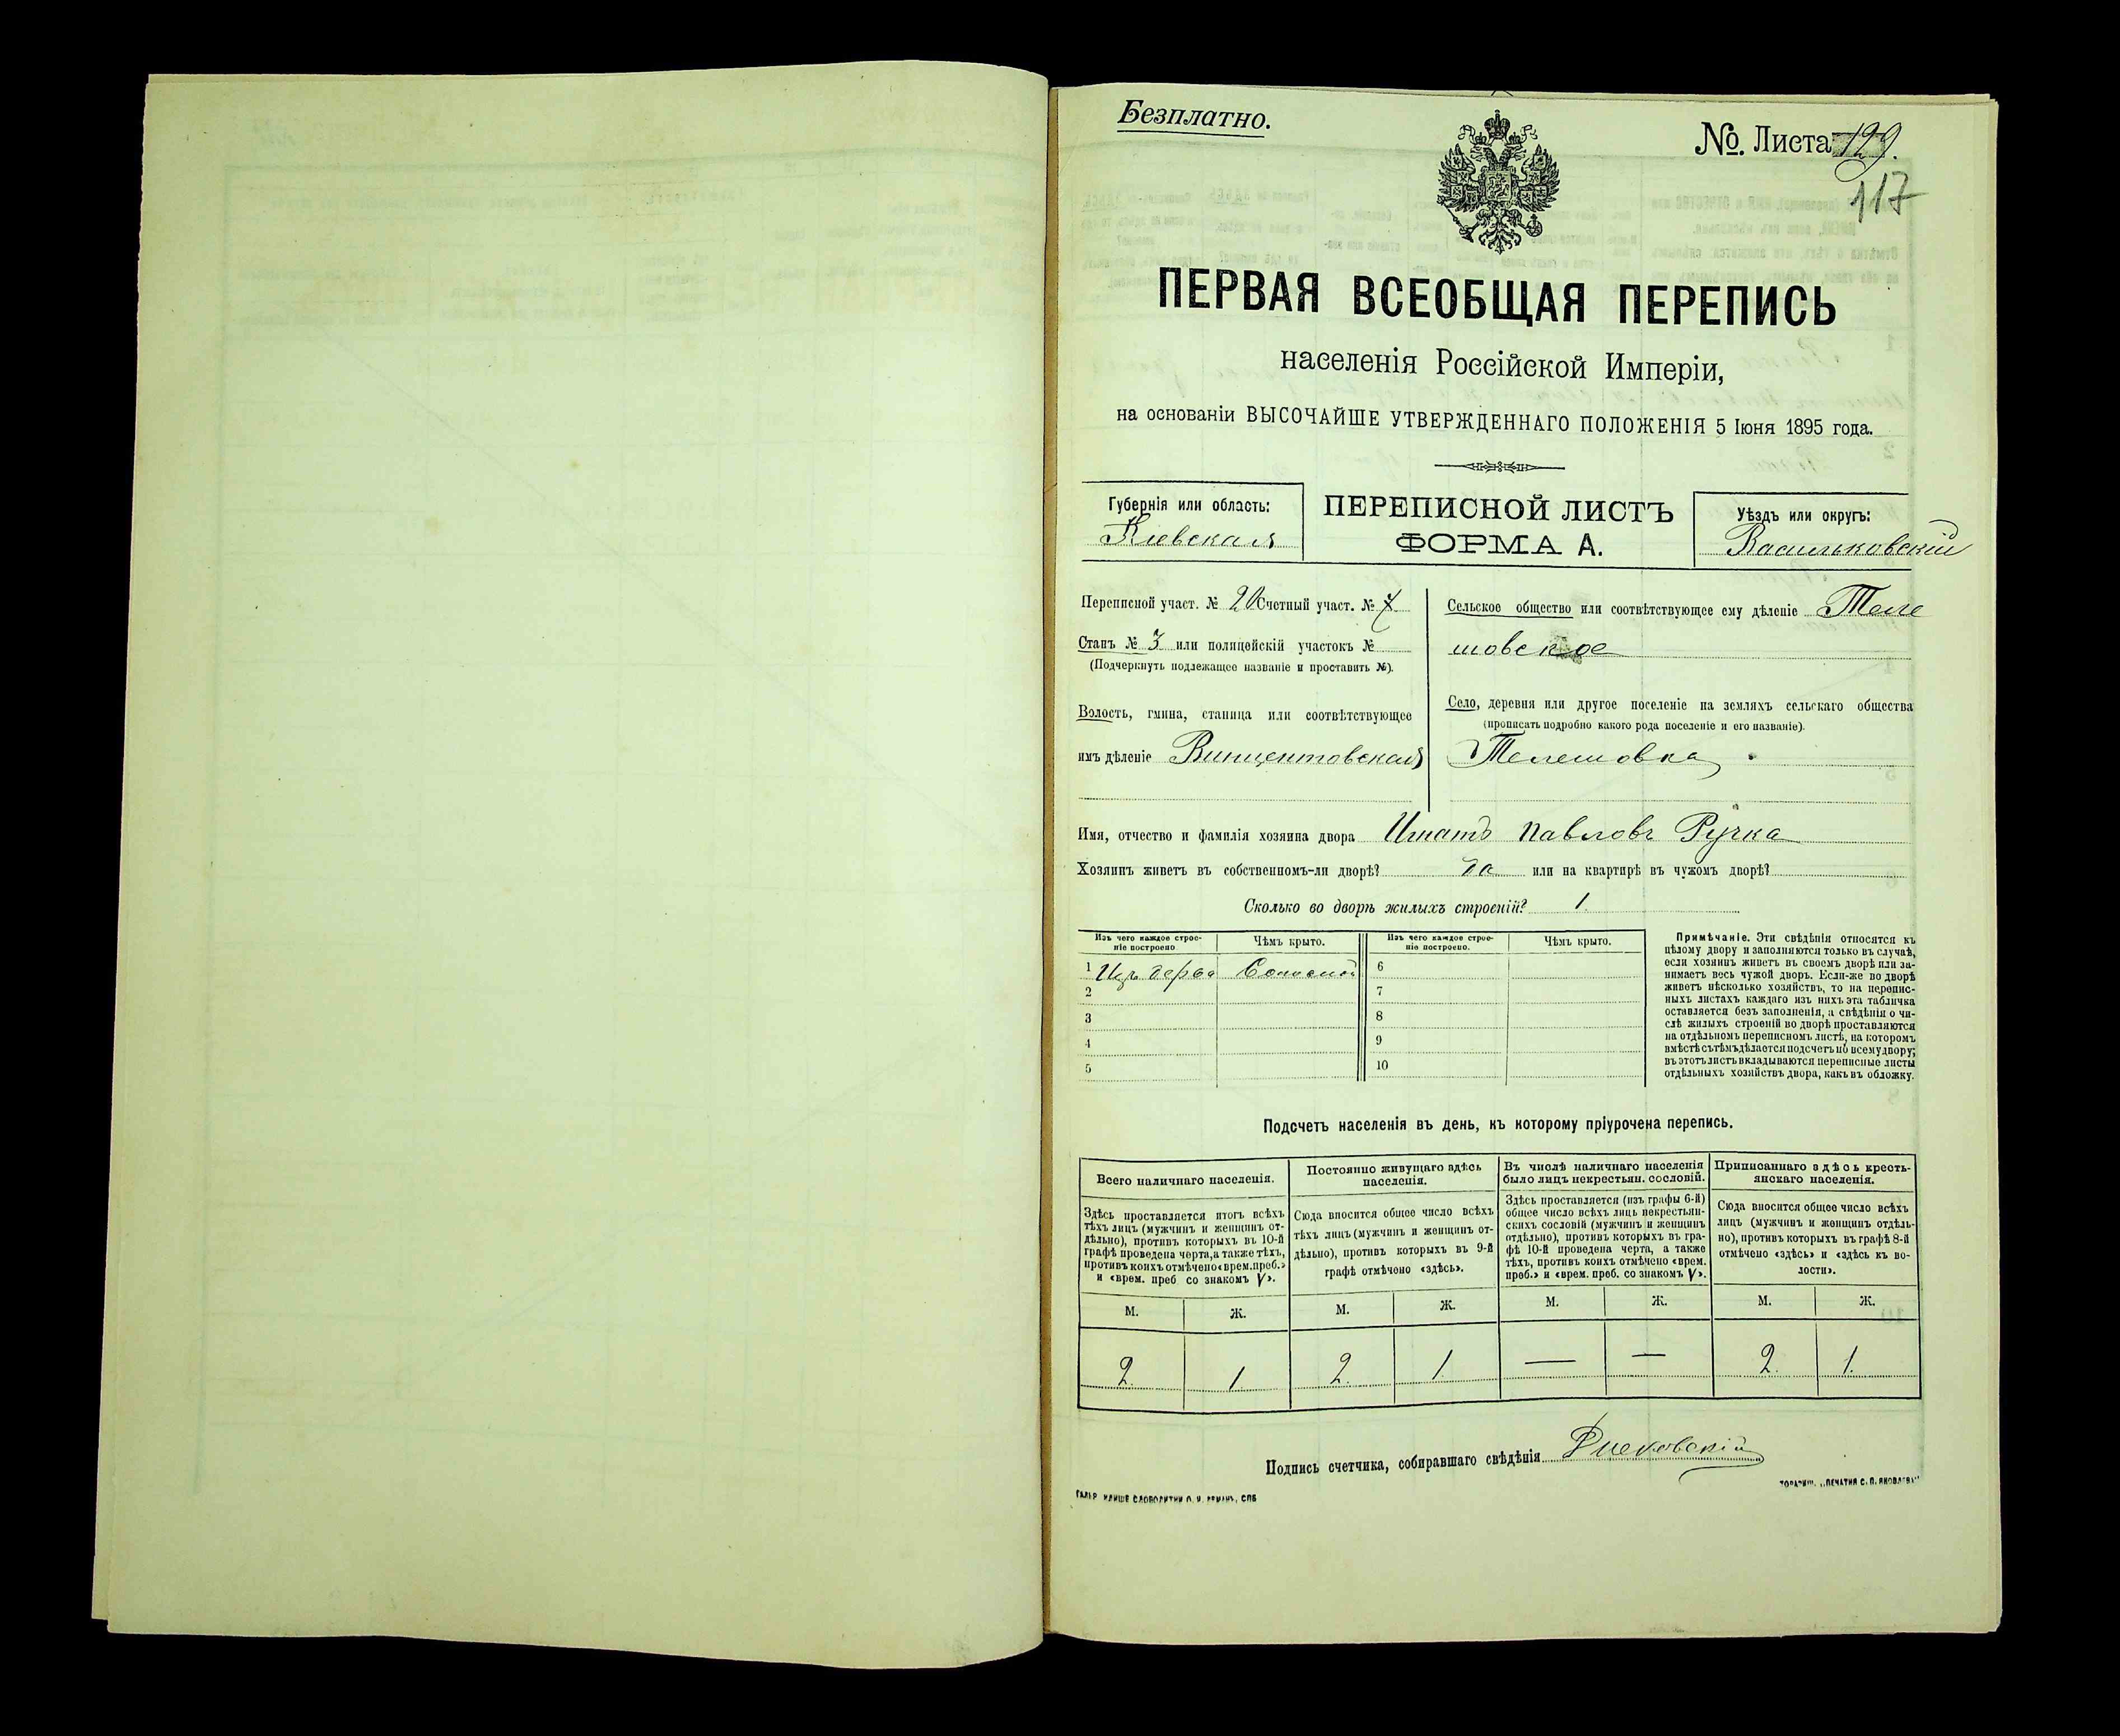 Безплатно.
№. Листа 129.
117
ПЕРВАЯ ВСЕОБЩАЯ ПЕРЕПИСЬ
населенія Россійской Имперіи,
на основаніи ВЫСОЧАЙШЕ УТВЕРЖДЕННАГО ПОЛОЖЕНІЯ 5 Іюня 1895 года.
Губернія или область:
Кіевская
ПЕРЕПИСНОЙ ЛИСТЪ
ФОРМА А.
Уѣздъ или округъ:
Васильковскій
Переписной участ. № 20 Счетный участ. №
Станъ № 3 или полицейскій участокъ №
(Подчеркнуть подлежащее названіе и проставить №).
Волость, гмина, станица или соотвѣтствующее
имъ дѣленіе Винцентовская
Сельское общество или соотвѣтствующее ему дѣленіе Теле
шовское
Село, деревня или другое поселеніе на земляхъ сельскаго общества
(прописать подробно какого рода поселеніе и его названіе).
Телешовка
Имя, отчество и фамилія хозяина двора Игнатъ Павловъ Ручка
Хозяинъ живетъ въ собственномъ-ли дворѣ? да или на квартирѣ въ чужомъ дворѣ?
Сколько во дворѣ жилыхъ строеній? 1.
Изъ чего каждое строе-
ніе построено
Чѣмъ крыто.
Изъ чего каждое строе-
ніе построено.
Чѣмъ крыто.
1 Изъ дерва Соломой
2
3
4
5
6
7
8
9
10
Примѣчаніе. Эти свѣдѣнія относятся къ
цѣлому двору и заполняются только въ случаѣ,
если хозяинъ живетъ въ своемъ дворѣ или за-
нимаетъ весь чужой дворъ. Если-же во дворѣ
живетъ нѣсколько хозяйствъ, то на перепис-
ныхъ листахъ каждаго изъ нихъ эта табличка
оставляется безъ заполненія, а свѣдѣнія о чи-
слѣ жилыхъ строеній во дворѣ проставляются
на отдѣльномъ переписномъ листѣ, на которомъ
вмѣстѣ съ тѣмъ дѣлается подсчетъ по всему двору;
въ этотъ листъ вкладываются переписные листы
отдѣльныхъ хозяйствъ двора, какъ въ обложку.
Подсчетъ населенія въ день, къ которому пріурочена перепись.
Всего наличнаго населенія.
Здѣсь проставляется итогъ всѣхъ
тѣхъ лицъ (мужчинъ и женщинъ от-
дѣльно), противъ которыхъ въ 10-й
графѣ проведена черта, а также тѣхъ,
противъ коихъ отмѣчено «врем. преб.»
и «врем. преб со знакомъ V».
Постоянно живущаго здѣсь
населенія.
Сюда вносится общее число всѣхъ
тѣхъ лицъ (мужчинъ и женщинъ от-
дѣльно), противъ которыхъ въ 9-й
графѣ отмѣчено «здѣсь».
Въ числѣ наличнаго населенія
было лицъ некрестьян. сословій.
Здѣсь проставляется (изъ графы 6-й)
общее число всѣхъ лицъ некрестьян-
скихъ сословій (мужчинъ и женщинъ
отдѣльно), противъ которыхъ въ гра-
фѣ 10-й проведена черта, а также
тѣхъ, противъ коихъ отмѣчено «врем.
преб.» и «врем. преб. со знакомъ V».
Приписаннаго здѣсь кресть-
янскаго населенія.
Сюда вносится общее число всѣхъ
лицъ (мужчинъ и женщинъ отдѣль-
но), противъ которыхъ въ графѣ 8-й
отмѣчено «здѣсь» и «здѣсь въ во-
лости».
М. Ж. М. Ж. М. Ж. М. Ж.
2. 1. 2. 1. — — 2. 1.
Подпись счетчика, собиравшаго свѣдѣнія